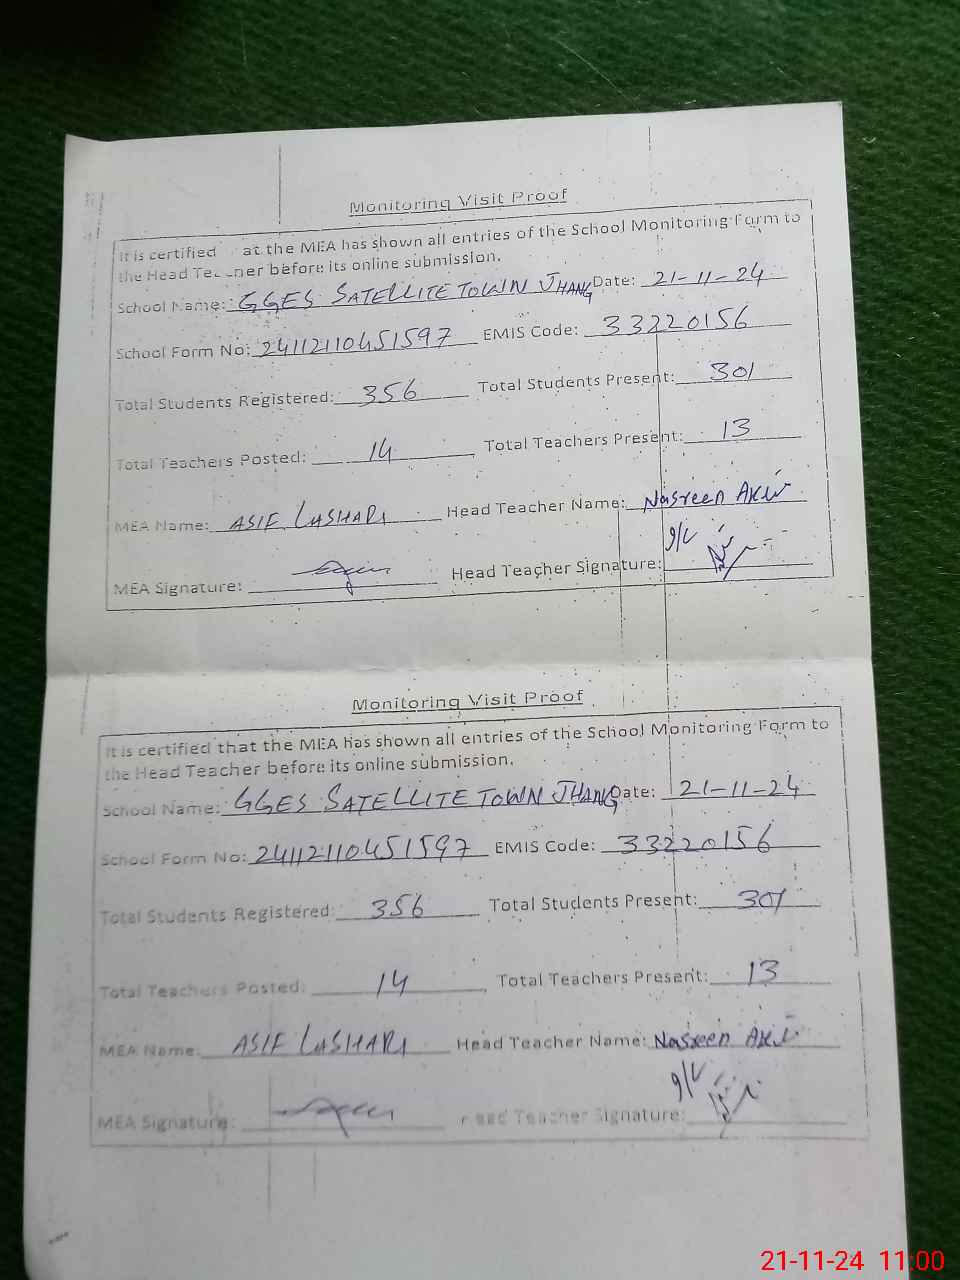 Monitoring Visit Proof
It is certified at the MEA has shown all entries of the School Monitoring Form to
the Head Teacher before its online submission.
School Name: GGES SATELLITE TOWN JHANG Date: 21-11-24
School Form No: 24112110451597 EMIS Code: 33220156
Total Students Registered: 356 Total Students Present: 301
Total Teachers Posted: 14 Total Teachers Present: 13
MEA Name: ASIF LASHARI Head Teacher Name: Nasreen
MEA Signature: Head Teacher Signature:
Monitoring Visit Proof
It is certified that the MEA has shown all entries of the School Monitoring Form to
the Head Teacher before its online submission.
School Name: GGES SATELLITE TOWN JHANG Date: 21-11-24
School Form No: 24112110451597 EMIS Code: 33220156
Total Students Registered: 356 Total Students Present: 301
Total Teachers Posted: 14 Total Teachers Present: 13
MEA Name: ASIF LASHARI Head Teacher Name: Nasreen
MEA Signature: Head Teacher Signature:
21-11-24 11:00